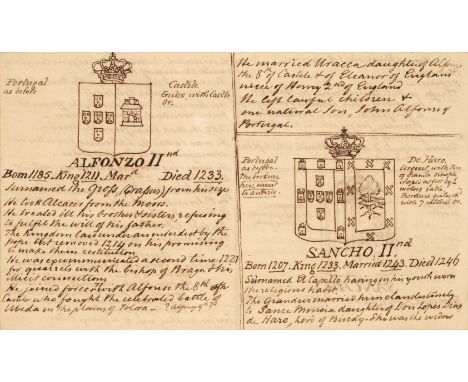 Portugal
as before
Castile
Gules, with Castle
Or.
ALFONZO IInd
Born 1185. King 1211. Mard Died 1233.
Surnamed the Gross, (Crassus) from his size
He took Alcacer from the Moors.
He treated ill his brother & sisters, refusing
to fulfil the will of his father.
The Kingdom laid under an interdict by the
Pope but removed 1214 on his promising
to make them restitution
He was excommunicated a second time 1221
for quarrels with the Bishop of Braga & his
illicit connection
He joined forces with Alfonse the 8th of
Castile who fought the celebrated battle of
Ubeda in the plains of Tolosa.
He married Uracca daughter of Alfonse
the 8th of Castile & of Eleanor of England
niece of Henry 2nd of England
He left lawful children &
one natural son, John Alfonso of
Portugal.
Portugal
as before.
The bordure
De Haro.
Argent, with tree
wolves sable.
Bordure gules, with
SANCHO IInd
Born 1207. King 1233. Married 1243. Died 1246
Surnamed El Capello having in his youth worn
the religious habit.
The Grandees married him clandestinely
to Sance Mencia daughter of Don Lopes Dias
de Haro, lord of Biscay. She was the widow